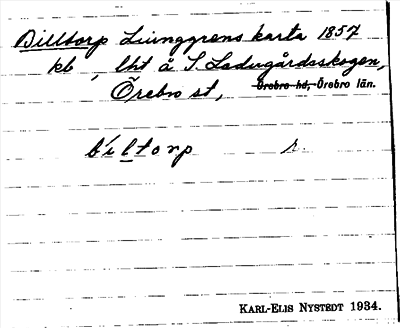 Billtorp Ljunggrens karta 1857
kb, lht å S. Ladugårdsskogen,
Örebro st, Örebro hd, Örebro län.
biltorp
KARL-ELIS NYSTEDT 1934.